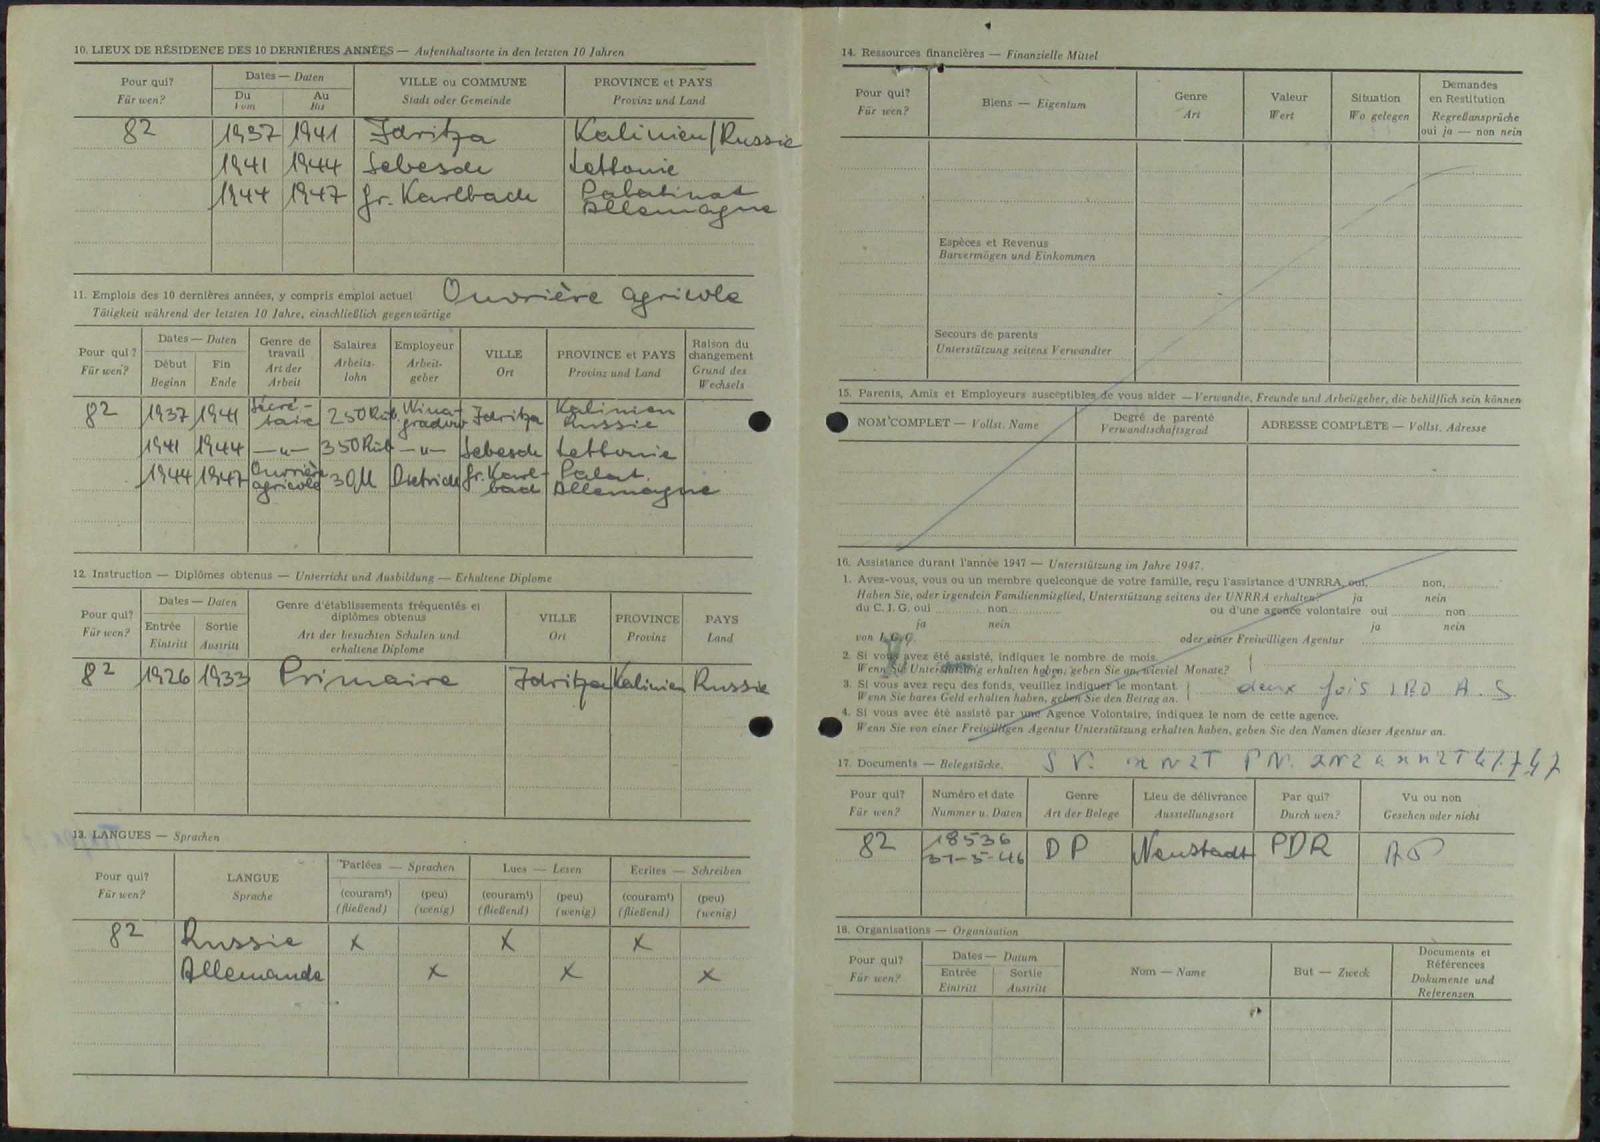 10. LIEUX DE RÉSIDENCE DES 10 DERNIÈRES ANNÉES — Aufenthaltsorte in den letzten 10 Jahren
Pour qui? Dates — Daten VILLE ou COMMUNE PROVINCE et PAYS
Für wen? Du Au Stadt oder Gemeinde Provinz und Land
Vom Bis
82 1937 1941 Idritza Kalinien/Russie
1941 1944 Sebesch Lettonie
1944 1947 Gr. Karlbach Palatinat
Allemagne
11. Emplois des 10 dernières années, y compris emploi actuel Ouvrière agricole
Tätigkeit während der letzten 10 Jahre, einschließlich gegenwärtige
Pour qui? Dates — Daten Genre de travail Salaires Employeur VILLE PROVINCE et PAYS Raison du changement
Für wen? Début Fin Art der Arbeit Arbeitslohn Arbeitgeber Ort Provinz und Land Grund des Wechsels
Beginn Ende
82 1937 1941 Secrétaire 250 Rub. Winagradow Idritza Kalinien Russie
1941 1944 —"— 350 Rub —"— Sebesch Lettonie
1944 1947 Ouvrière agricole 30M Dietrich Gr. Karlbach Palat. Allemagne
12. Instruction — Diplômes obtenus — Unterricht und Ausbildung — Erhaltene Diplome
Pour qui? Dates — Daten Genre d'établissements fréquentés et diplômes obtenus VILLE PROVINCE PAYS
Für wen? Entrée Sortie Art der besuchten Schulen und erhaltene Diplome Ort Provinz Land
Eintritt Austritt
82 1926 1933 Primaire Idritza Kalinien Russie
13. LANGUES — Sprachen
Pour qui? LANGUE Parlées — Sprachen Lues — Lesen Ecrites — Schreiben
Für wen? Sprache (couramt) (peu) (couramt) (peu) (couramt) (peu)
(fließend) (wenig) (fließend) (wenig) (fließend) (wenig)
82 Russie x x x
Allemande x x x
14. Ressources financières — Finanzielle Mittel
Pour qui? Biens — Eigentum Genre Valeur Situation Demandes en Restitution
Für wen? Art Wert Wo gelegen Regreßansprüche
oui ja — non nein
Espèces et Revenus
Barvermögen und Einkommen
Secours de parents
Unterstützung seitens Verwandter
15. Parents, Amis et Employeurs susceptibles de vous aider — Verwandte, Freunde und Arbeitgeber, die behilflich sein können
NOM COMPLET — Vollst. Name Degré de parenté ADRESSE COMPLETE — Vollst. Adresse
Verwandtschaftsgrad
16. Assistance durant l'année 1947 — Unterstützung im Jahre 1947.
1. Avez-vous, vous ou un membre quelconque de votre famille, reçu l'assistance d'UNRRA, oui, non,
Haben Sie, oder irgendein Familienmitglied, Unterstützung seitens der UNRRA erhalten? ja nein
du C. I. G. oui non ou d'une agence volontaire oui non
ja nein ja nein
von I.G.C. oder einer Freiwilligen Agentur
2. Si vous avez été assisté, indiquez le nombre de mois.
Wenn Sie Unterstützung erhalten haben, geben Sie an, wieviel Monate?
3. Si vous avez reçu des fonds, veuillez indiquer le montant deux fois IRO A. S
Wenn Sie bares Geld erhalten haben, geben Sie den Betrag an.
4. Si vous avec été assisté par une Agence Volontaire, indiquez le nom de cette agence.
Wenn Sie von einer Freiwilligen Agentur Unterstützung erhalten haben, geben Sie den Namen dieser Agentur an.
17. Documents — Belegstücke.
Pour qui? Numéro et date Genre Lieu de délivrance Par qui? Vu ou non
Für wen? Nummer u. Daten Art der Belege Ausstellungsort Durch wen? Gesehen oder nicht
82 18536 DP Neustadt PDR
31-5-46
18. Organisations — Organisation
Pour qui? Dates — Datum Nom — Name But — Zweck Documents et Références
Für wen? Entrée Sortie Dokumente und Referenzen
Eintritt Austritt